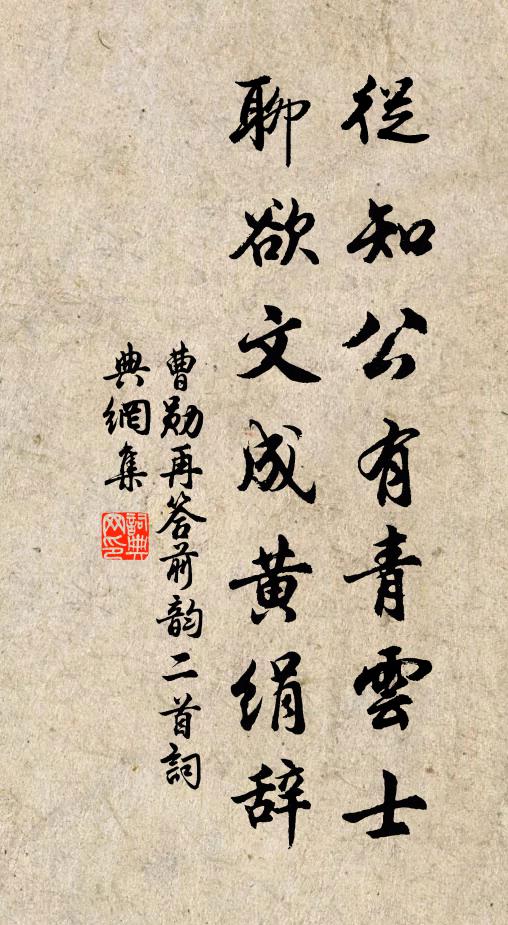 從知公有青雲士
聊欲文成黄絹辞
曹勛再答前韵二首詞
典網集
詞典網印